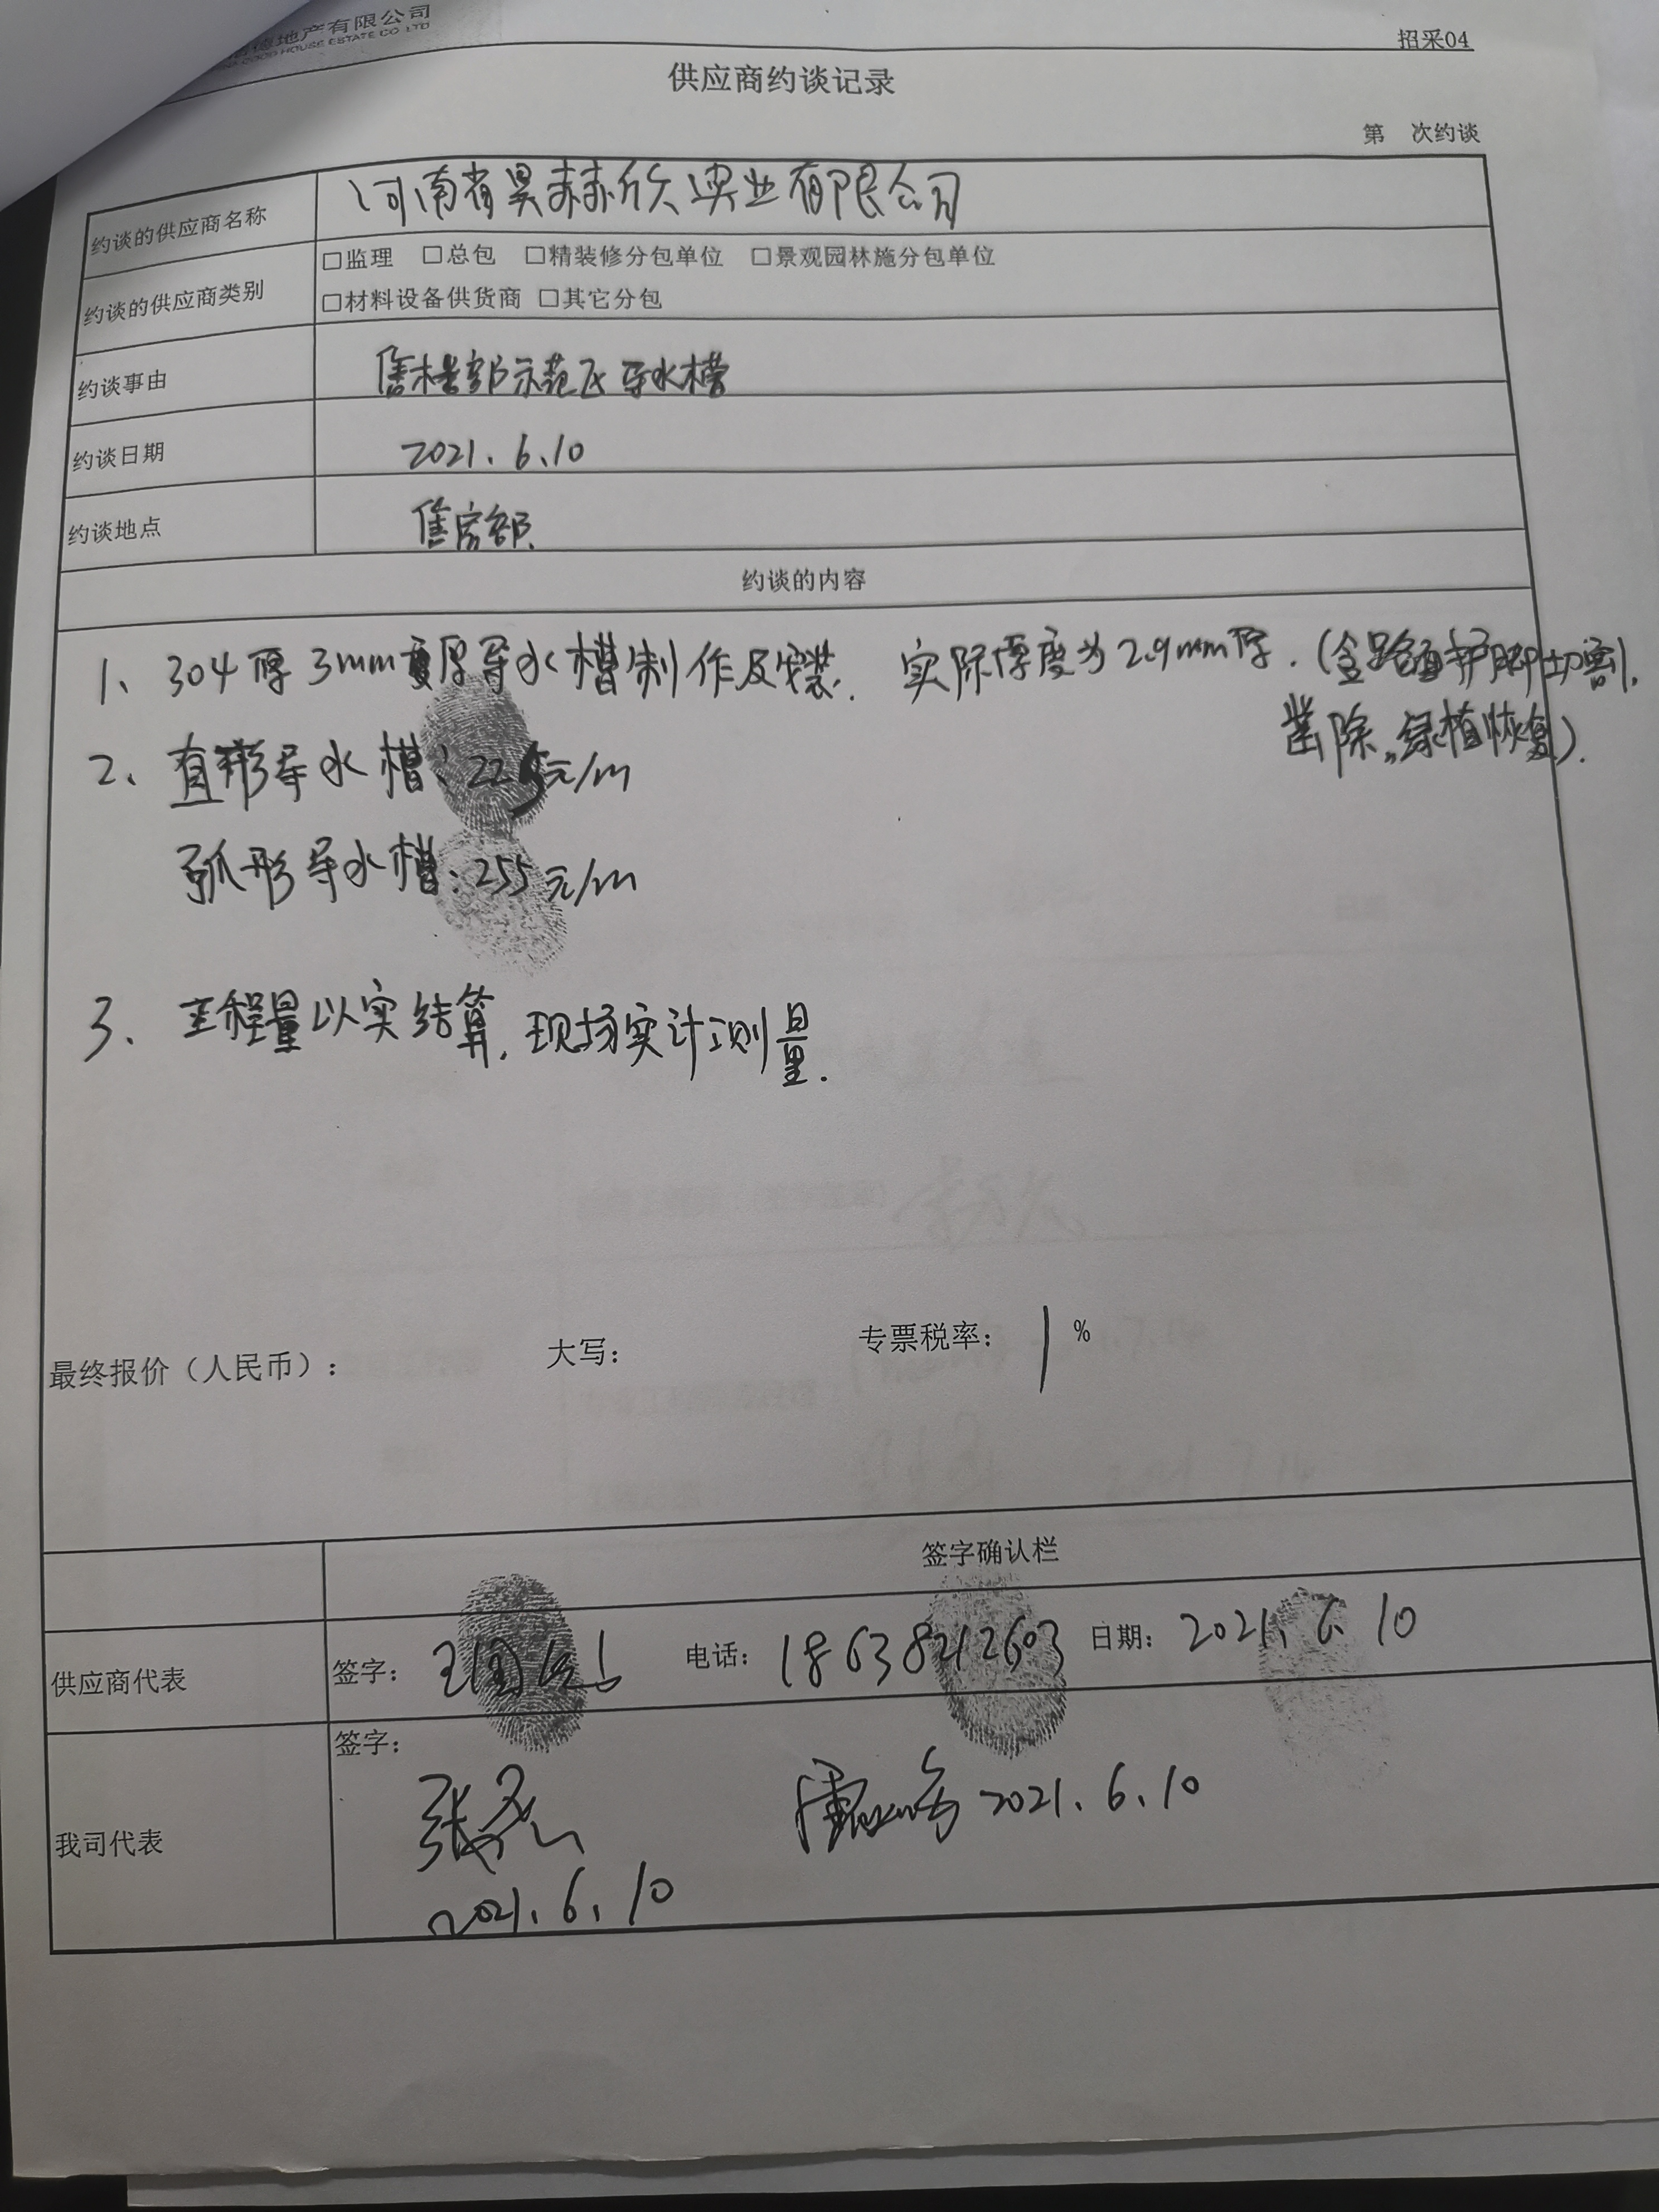 地产有限公司
GOOD HOUSE ESTATE CO LTD
招采04
供应商约谈记录
第 次约谈
约谈的供应商名称 河南省昊赫欣实业有限公司
约谈的供应商类别 □监理 □总包 □精装修分包单位 □景观园林施分包单位
□材料设备供货商 □其它分包
约谈事由 售楼部示范区导水槽
约谈日期 2021.6.10
约谈地点 售房部.
约谈的内容
1、304厚3mm厚导水槽制作及安装. 实际厚度为2.9mm厚.(含路面护脚切割.
凿除,绿植恢复).
2、直形导水槽:225元/m
弧形导水槽:255元/m
3、工程量以实结算,现场实计测量.
最终报价(人民币): 大写: 专票税率: 1 %
签字确认栏
供应商代表 签字: 电话: 18638212603 日期: 2021.6.10
我司代表 签字:
2021.6.10
2021.6.10